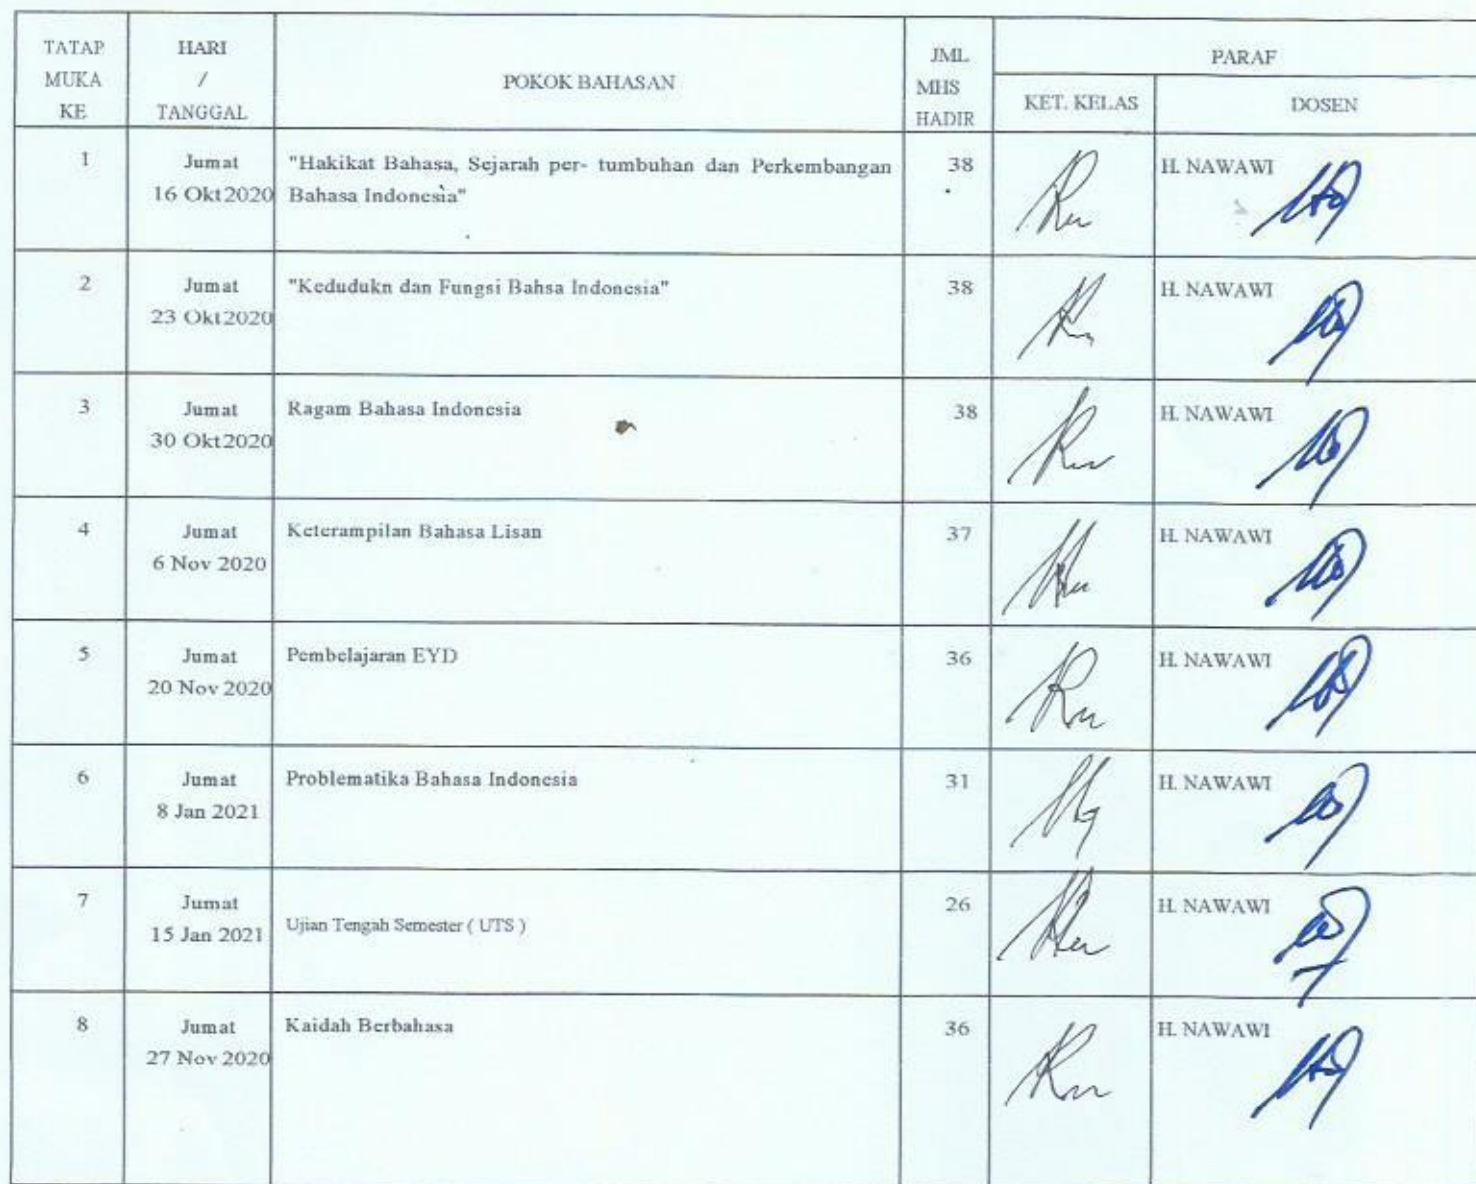 TATAP MUKA KE
HARI / TANGGAL
POKOK BAHASAN
JML MHS HADIR
PARAF
KET. KELAS
DOSEN
1
Jumat
16 Okt2020
"Hakikat Bahasa, Sejarah per- tumbuhan dan Perkembangan
Bahasa Indonesia"
38
H. NAWAWI
2
Jumat
23 Okt2020
"Kedudukn dan Fungsi Bahsa Indonesia"
38
H. NAWAWI
3
Jumat
30 Okt2020
Ragam Bahasa Indonesia
38
H. NAWAWI
4
Jumat
6 Nov 2020
Keterampilan Bahasa Lisan
37
H. NAWAWI
5
Jumat
20 Nov 2020
Pembelajaran EYD
36
H. NAWAWI
6
Jumat
8 Jan 2021
Problematika Bahasa Indonesia
31
H. NAWAWI
7
Jumat
15 Jan 2021
Ujian Tengah Semester ( UTS )
26
H. NAWAWI
8
Jumat
27 Nov 2020
Kaidah Berbahasa
36
H. NAWAWI